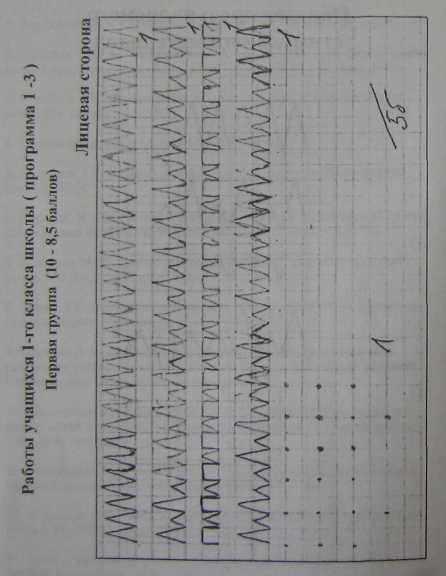 Работы учащихся 1-го класса школы ( программа 1 -3 )
Первая группа (10 - 8,5 баллов)
Лицевая сторона
1
1
1
1
1